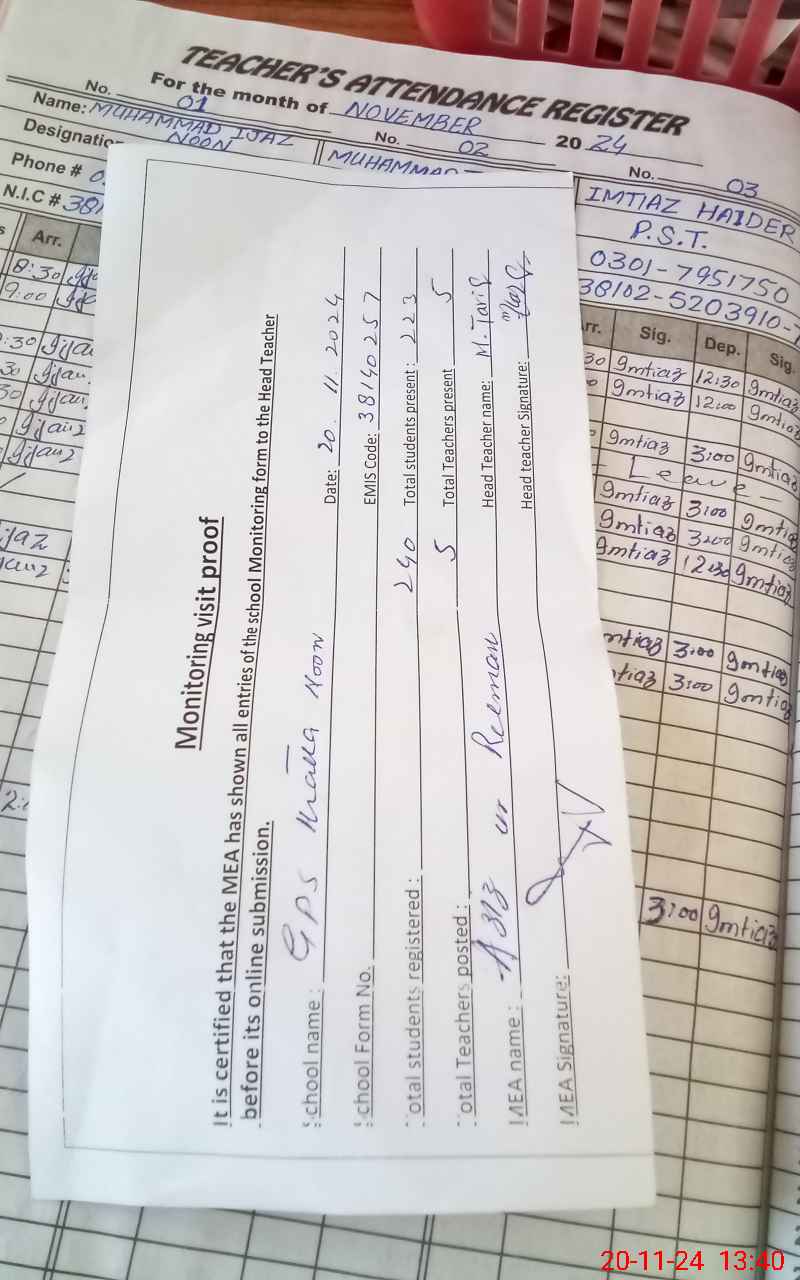 TEACHER'S ATTENDANCE REGISTER
For the month of NOVEMBER 2024
No. 01
Name: MUHAMMAD IJAZ
NOON
Phone #
N.I.C #
Arr.
8:30
9:00
No. 02
No. 03
IMTIAZ HAIDER
P.S.T.
0301-7951750
38102-5203910-
Sig. Dep. Sig.
gmtiaz 12:30 gmtiaz
gmtiaz 12:00 gmtiaz
gmtiaz 3:00 gmtiaz
Leave
gmtiaz 3:00 gmtiaz
gmtiaz 3:00 gmtiaz
gmtiaz 12:30 gmtiaz
3:00 gmtiaz
3:00 gmtiaz
3:00 gmtiaz
Monitoring visit proof
It is certified that the MEA has shown all entries of the school Monitoring form to the Head Teacher
before its online submission.
School name : GPS Khatta Noon Date: 20.11.2024
School Form No. EMIS Code: 38140257
Total students registered : 240 Total students present : 223
Total Teachers posted : 5 Total Teachers present 5
MEA name : Aziz ur Rehman Head Teacher name: M. Tariq
MEA Signature: Head teacher Signature:
20-11-24 13:40